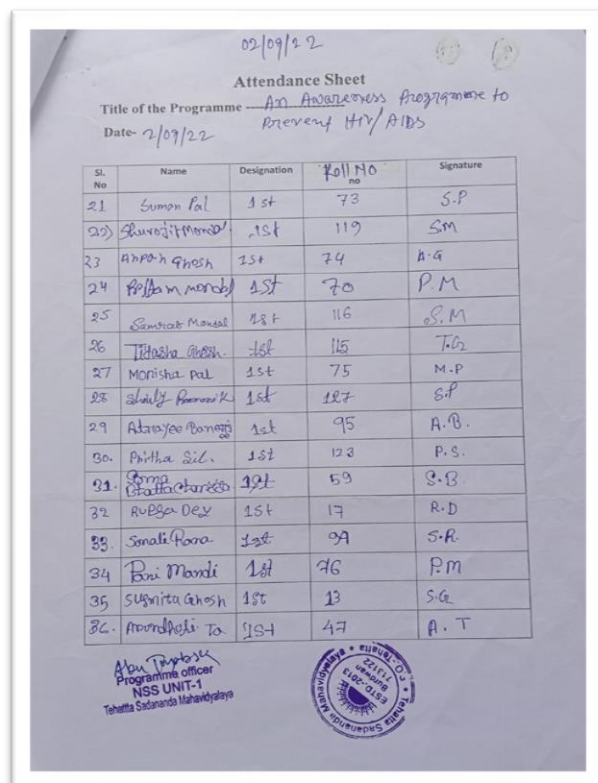 02/09/22
Attendance Sheet
Title of the Programme An Awareness Programme to
Prevent HIV/AIDS
Date- 2/09/22
Sl. No Name Designation Roll No no Signature
21 Suman Pal 1st 73 S.P
22) Shurojit Mondal 1st 119 SM
23 Ghosh 1st 74 A.G
24 mondal 1st 70 P.M
25 Samrat Mondal 1st 116 S.M
26 Titasha Ghosh. 1st 115 T.G
27 Monisha pal 1st 75 M.P
28 1st 127 S.P
29 Atrayee Banerjee 1st 95 A.B.
30. Pritha Sil. 1st 123 P.S.
31. Soma Bhattacharjee 1st 59 S.B
32 Rupsa Dey 1st 17 R.D
33. Sonali Rana 1st S.R.
34 Pani Mandi 1st 76 P.M
35 Susmita Ghosh 1st 13 S.G
36. 1st 47 A.T
Programme officer
NSS UNIT-1
Tehatta Sadananda Mahavidyalaya
Tehatta Sadananda Mahavidyalaya
ESTD-2013
Burdwan
713122